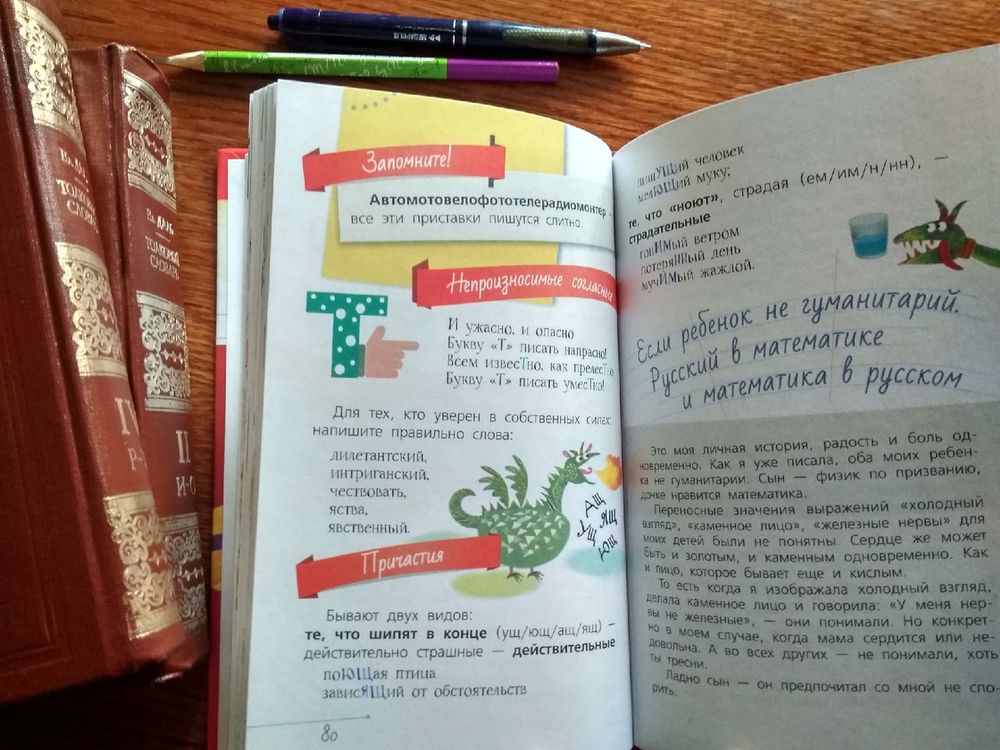 MEGAFON
Вл. ДАЛЬ
ТОЛКОВЫЙ
СЛОВАРЬ
IV
Вл. ДАЛЬ
ТОЛКОВЫЙ
СЛОВАРЬ
II
И-О
Запомните!
Автомотовелофототелерадиомонтер —
все эти приставки пишутся слитно.
Непроизносимые согласные
Т
И ужасно, и опасно
Букву «Т» писать напрасно!
Всем извесТно, как прелесТно
Букву «Т» писать умесТно!
Для тех, кто уверен в собственных силах:
напишите правильно слова:
дилетантский,
интриганский,
чествовать,
яства,
явственный.
АЩ
УЩ ЯЩ
ЮЩ
Причастия
Бывают двух видов:
те, что шипят в конце (ущ/ющ/ащ/ящ) —
действительно страшные — действительные
поЮЩая птица
зависЯЩий от обстоятельств
80
пишУЩий человек
мелЮЩий муку;
те, что «ноют», страдая (ем/им/н/нн), —
страдательные
гонИМый ветром
потеряННый день
мучИМый жаждой.
Если ребенок не гуманитарий.
Русский в математике
и математика в русском
Это моя личная история, радость и боль од-
новременно. Как я уже писала, оба моих ребен-
ка не гуманитарии. Сын — физик по призванию,
дочке нравится математика.
Переносные значения выражений «холодный
взгляд», «каменное лицо», «железные нервы» для
моих детей были не понятны. Сердце же может
быть и золотым, и каменным одновременно. Как
и лицо, которое бывает еще и кислым.
То есть когда я изображала холодный взгляд,
делала каменное лицо и говорила: «У меня нер-
вы не железные», — они понимали. Но конкрет-
но в моем случае, когда мама сердится или не-
довольна. А во всех других — не понимали, хоть
ты тресни.
Ладно сын — он предпочитал со мной не спо-
рить.